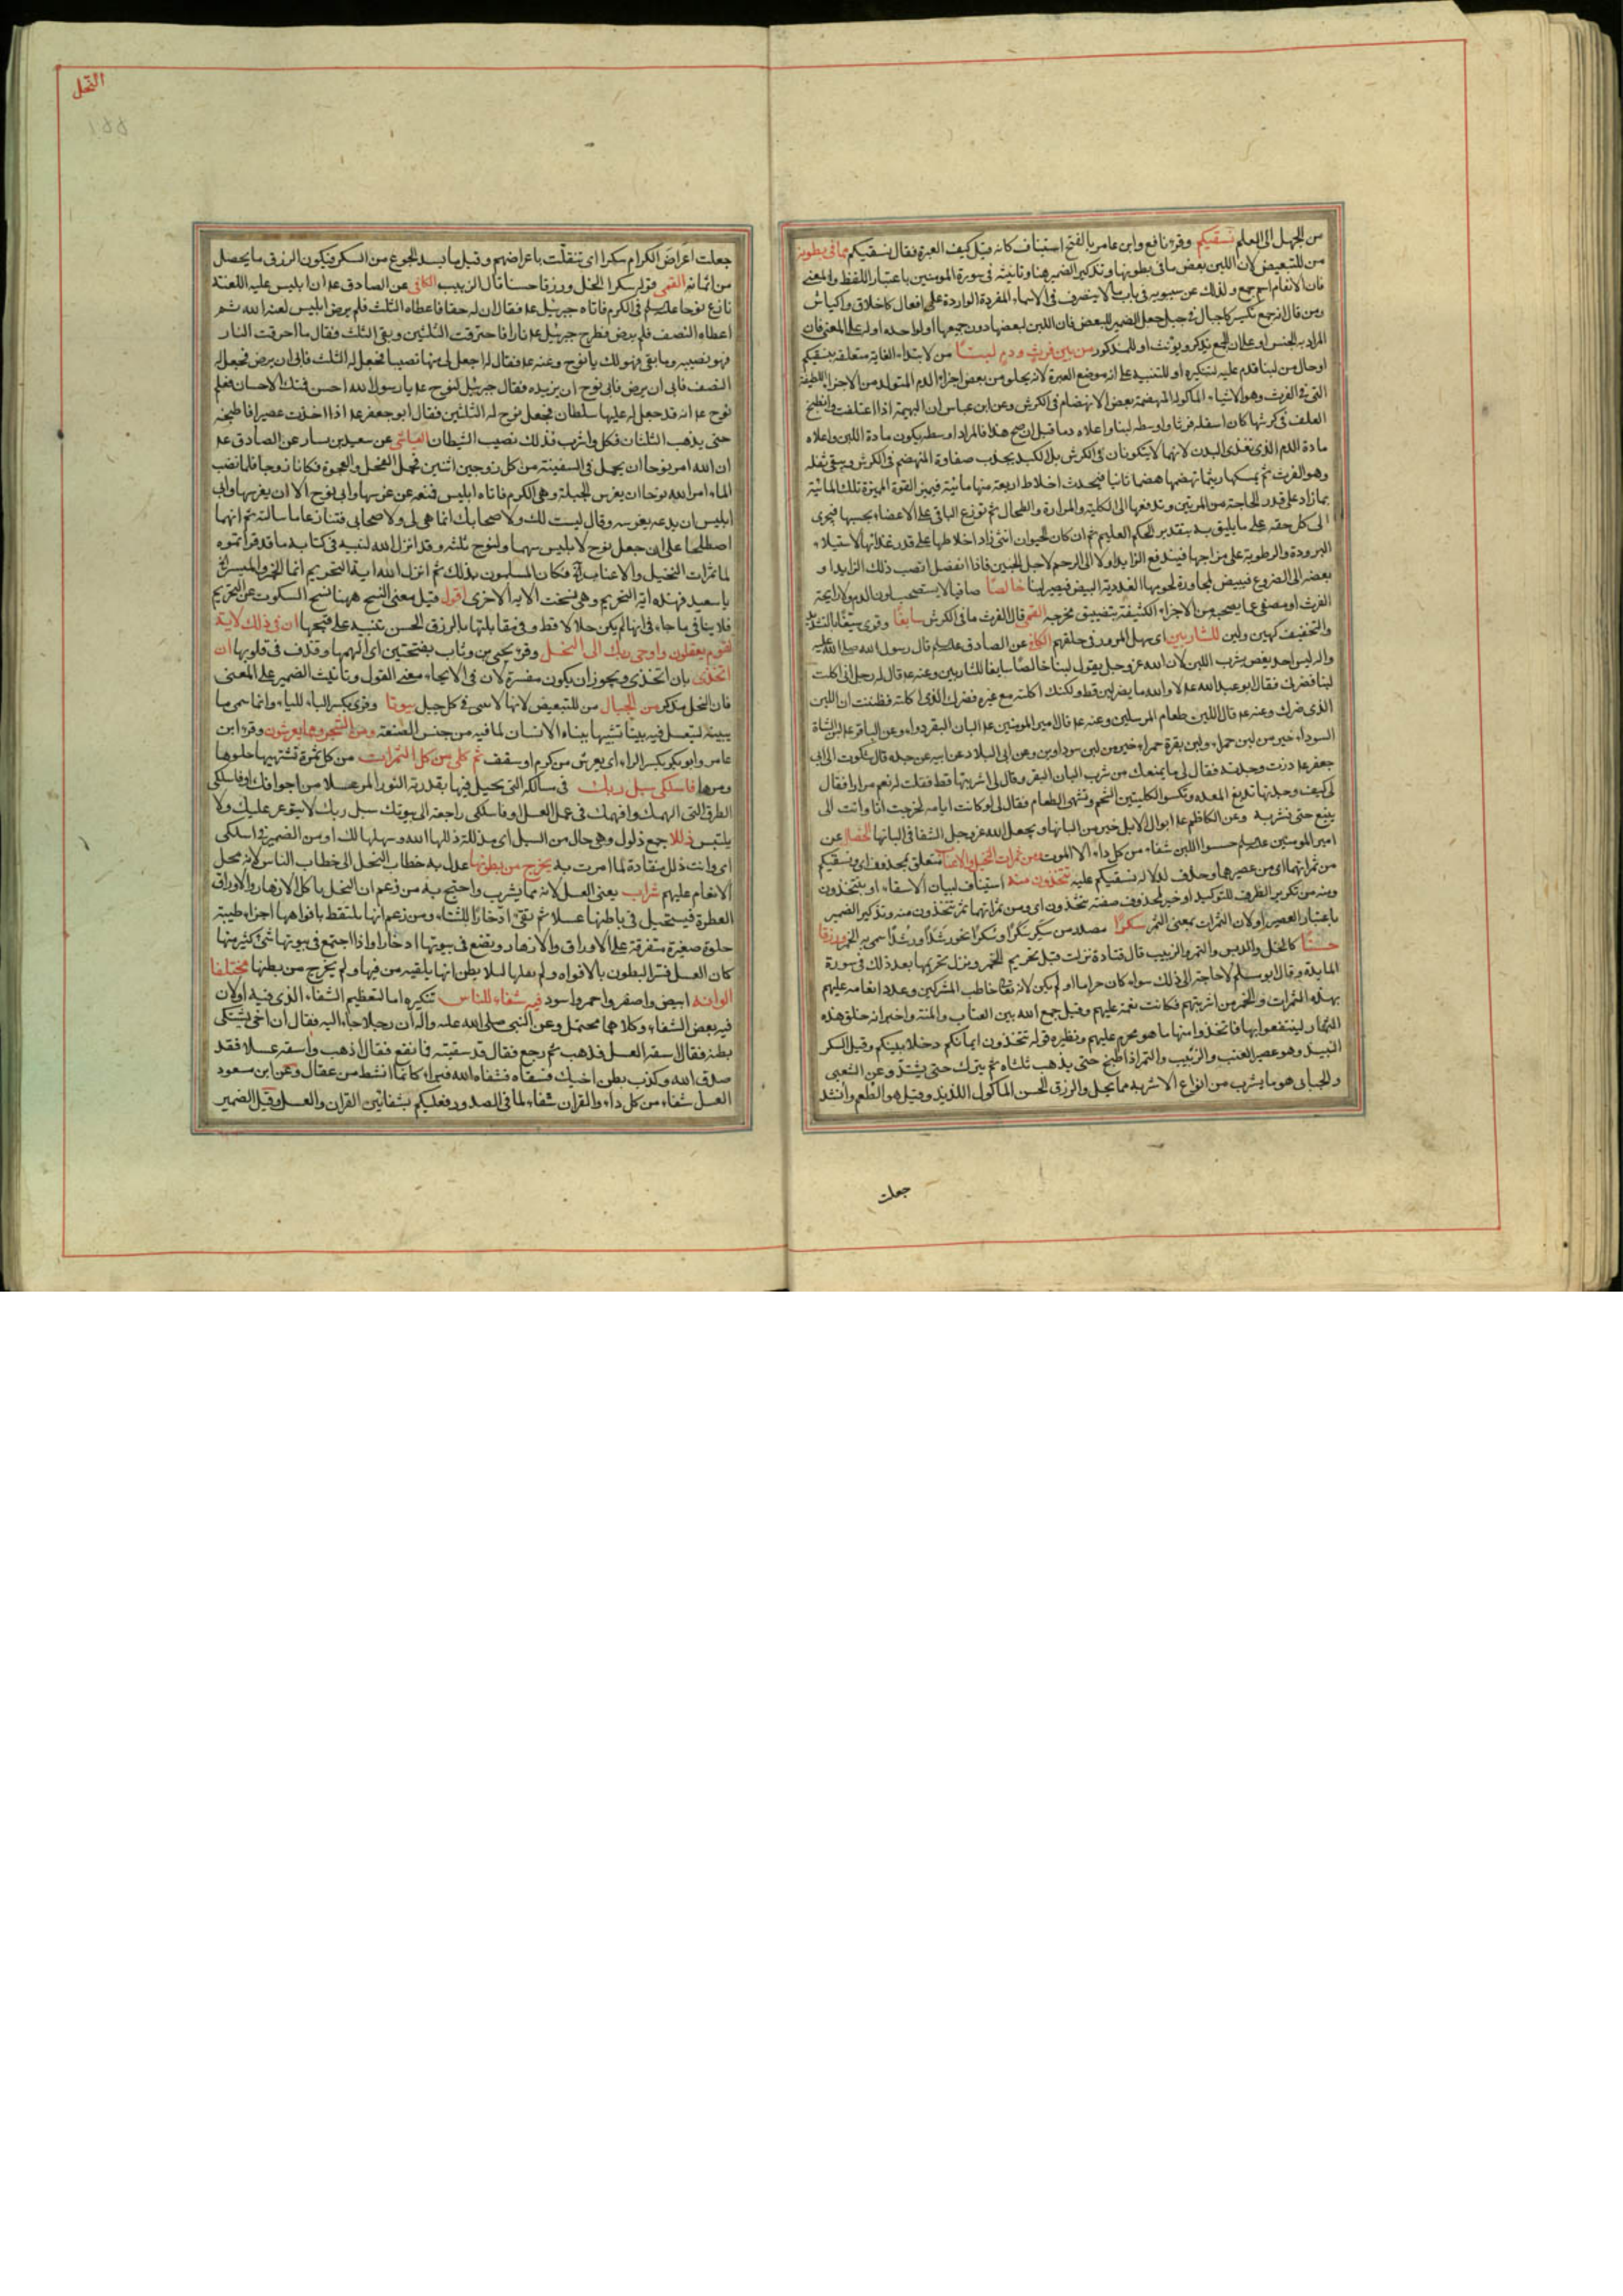 النحل
من الجهل الى العلم نسقيكم وقرء نافع وابن عامر بالفتح استيناف كانه قيل كيف العبرة فقال نسقيكم مما فى بطونه
من للتبعيض لان اللبن بعض ما فى بطونها وتذكير الضمير هنا وتانيثه فى سورة المومنين باعتبار اللفظ والمعنى
فان الانعام اسم جمع ولذلك عن سيبويه فى باب ما لا ينصرف فى الاسماء المفردة الواردة على افعال كاخلاق واكياش
ومن قال انه جمع جعل الضمير للبعض فان اللبن لبعضها دون جميعها او لواحده او له على المعنى فان
المراد به الجنس او على ان الجمع يذكر ويونث او للمذكور من بين فرث ودم لبنا من لابتداء الغاية متعلقة بنسقيكم
او حال من لبنا قدم عليه لتنكيره او للتنبيه على انه موضع العبرة لانه من بعض اجزاء الدم المتولد من الاجزاء اللطيفة
التى فى الفرث وهو الاشياء الماكولة المنهضمة بعض الانهضام فى الكرش وعن ابن عباس ان البهيمة اذا اعتلفت وانطبخ
العلف فى كرشها كان اسفله فرثا واوسطه لبنا واعلاه دما قيل ان صح هذا فالمراد اوسطه يكون مادة اللبن واعلاه
مادة الدم الذى يغذى البدن لانهما لا يتكونان فى الكرش بل الكبد يجذب صفاوة المنهضم فى الكرش ويبقى ثفله
وهو الفرث ثم يمسكها ريثما يهضمها هضما ثانيا فيحدث اخلاط اربعة منها مائية فيميز القوة المميزة تلك المائية
بما زاد على قدر الحاجة من المرتين وتدفعها الى الكلية والمرارة والطحال ثم توزع الباقى على الاعضاء بحسبها فيجرى
الى كل حقه على ما يليق به بتقدير الحكيم العليم ثم ان كان الحيوان انثى زاد اخلاطها على قدر غذائها لاستيلاء
البرودة والرطوبة على مزاجها فيندفع الزايد اولا الى الرحم لاجل الجنين فاذا انفصل انصب ذلك الزايد او
بعضه الى الضروع فيبيض لمجاورة لحومها الغددية البيض فيصير لبنا خالصا صافيا لا يستصحب لون الدم ولا رايحة
الفرث او مصفى عما يصحبه من الاجزاء الكثيفة بتضييق مخرجه القمى قال الفرث ما فى الكرش سايغا وقرى سيغا بالتشديد
والتخفيف كهين ولين للشاربين اى سهل المرور فى حلقهم الكافى عن الصادق علیہ السلم قال رسول الله صلى الله عليه
واله ليس احد يغص بشرب اللبن لان الله عز وجل يقول لبنا خالصا سايغا للشاربين وعنه ع قال له رجل انى اكلت
لبنا فضرنى فقال ابو عبد الله ع لا والله ما يضر لبن قط ولكنك اكلته مع غيره فضرك الذى اكلته فظننت ان اللبن
الذى ضرك وعنه ع قال اللبن طعام المرسلين وعنه ع قال امير المومنين ع البان البقر دواء وعن الباقر ع لبن الشاة
السوداء خير من لبن حمراء ولبن بقرة حمراء خير من لبن سوداوين وعن ابى البلاد عن ابيه عن جده قال شكوت الى ابى
جعفر ع فقال لى ما يمنعك من شرب البان البقر وقال لى اشربتها قط فقلت له نعم مرارا فقال
لى كيف وجدتها تدبغ المعدة وتكسو الكليتين الشحم وتشهى الطعام فقال لى لو كانت ايامه لخرجت انا وانت الى
ينبع حتى نشربه وعن الكاظم ع ابوال الابل خير من البانها ويجعل الله عز وجل الشفا فى البانها الخصال عن
امير المومنين ع اللبن شفاء من كل داء الا الموت ومن ثمرات النخيل والاعناب متعلق بمحذوف اى ونسقيكم
من ثمراتهما اى من عصيرهما وحذف لدلالة نسقيكم عليه تتخذون منه استيناف لبيان الاسقاء او بتتخذون
ومنه من تكرير الظرف للتوكيد او خبر لمحذوف صفته تتخذون اى ومن ثمراتهما ثمر تتخذون منه وتذكير الضمير
باعتبار العصير او لان الثمرات بمعنى الثمر سكرا مصدر من سكر سكرا وسكرا نحو رشد رشدا ورشدا سمى به الخمر ورزقا
حسنا كالخل والدبس والتمر والزبيب قال قتادة نزلت قبل تحريم الخمر ونزل تحريمها بعد ذلك فى سورة
المايدة وقال ابو مسلم لا حاجة الى ذلك سواء كان حراما او لم يكن لانه تعالى خاطب المشركين وعدد انعامه عليهم
بهذه الثمرات والخمر من اشربتهم فكانت نعمة عليهم وقيل جمع الله بين العتاب والمنة واخبر انه خلق هذه
الثمار لينتفعوا بها فاتخذوا منها ما هو محرم عليهم ونظيره قوله تتخذون ايمانكم دخلا بينكم وقيل السكر
النبيذ وهو عصير العنب والزبيب والتمر اذا طبخ حتى يذهب ثلثاه ثم يترك حتى يشتد وعن الشعبى
والجبائى هو ما يشرب من انواع الاشربة مما يحل والرزق الحسن الماكول اللذيذ وقيل هو الطعم وانشد
جعلت
جعلت اعراض الكرام سكرا اى تنقلت باعراضهم وقيل ما يسد الجوع من السكر فيكون الرزق ما يحصل
من اثمانه القمى قوله سكرا الخل ورزقا حسنا قال الزبيب الكافى عن الصادق ع ان ابليس عليه اللعنة
نازع نوحا علیہ السلم فى الكرم فاتاه جبرئيل ع فقال ان له حقا فاعطاه الثلث فلم يرض ابليس لعنه الله ثم
اعطاه النصف فلم يرض فطرح جبرئيل ع نارا فاحترقت الثلثين وبقى الثلث فقال ما احرقت النار
فهو نصيبه وما بقى فهو لك يا نوح وعنه ع فقال له اجعل لى منها نصيبا فجعل له الثلث فابى ان يرض فجعل له
النصف فابى ان يرض فابى نوح ان يزيده فقال جبرئيل لنوح ع يا رسول الله احسن فمنك الاحسان فعلم
نوح ع انه قد جعل له عليها سلطان فجعل نوح له الثلثين فقال ابو جعفر ع اذا اخذت عصيرا فاطبخه
حتى يذهب الثلثان فكل واشرب فذلك نصيب الشيطان العياشى عن سعيد بن يسار عن الصادق ع
ان الله امر نوحا ان يحمل فى السفينة من كل زوجين اثنين فحمل النخل والعجوة فكانا زوجا فلما نضب
الماء امر الله نوحا ان يغرس الحبلة وهى الكرم فاتاه ابليس فمنعه عن غرسها وابى نوح الا ان يغرسها وابى
ابليس ان يدعه يغرسه وقال ليست لك ولا صحابك انما هى لى ولاصحابى فتنازعا ما شاء الله ثم انهما
اصطلحا على ان جعل نوح لابليس سهما ولنوح ثلثه وقد انزل الله لنبيه فى كتابه ما قد قراتموه
ثمرات النخيل والاعناب الاية فكان المسلمون بذلك ثم انزل الله اية التحريم انما الخمر والميسر
يا سعيد فهذه اية التحريم وهى نسخت الاية الاخرى اقول قيل معنى النسخ ههنا نسخ السكوت عن التحريم
فلا ينافى ما جاء فى انها لم يكن حلالا قط وفى مقابلتها بالرزق الحسن تنبيه على قبحها ان فى ذلك لاية
لقوم يعقلون واوحى ربك الى النحل وقرء يحيى بن وثاب بفتحتين اى الهمها وقذف فى قلوبها ان
اتخذى بان اتخذى ويجوز ان يكون مفسرة لان فى الايحاء معنى القول وتانيث الضمير على المعنى
فان النحل مذكر من الجبال من للتبعيض لانها لا تبنى فى كل جبل بيوتا وقرى بكسر الباء للياء وانما سمى ما
يبنيه لتعسل فيه بيتا تشبيها ببناء الانسان لما فيه من حسن الصنعة ومن الشجر ومما يعرشون وقرء ابن
عامر وابو بكر بكسر الراء اى يعرش من كرم او سقف ثم كلى من كل الثمرات من كل ثمرة تشتهيها حلوها
ومرها فاسلكى سبل ربك فى مسالكه التى يحيل فيها بقدرته النور المر عسلا من اجوافك او فاسلكى
الطرق التى الهمك وافهمك فى عمل العسل او فاسلكى راجعة الى بيوتك سبل ربك لا يتوعر عليك ولا
يلتبس ذللا جمع ذلول وهى حال من السبل اى مذللة ذللها الله وسهلها لك او من الضمير فى اسلكى
اى وانت ذلل منقادة لما امرت به يخرج من بطونها عدل به خطاب النحل الى خطاب الناس لانه محل
الانعام عليهم شراب يعنى العسل لانه مما يشرب واحتج به من زعم ان النحل ياكل الازهار والاوراق
العطرة فيستحيل فى باطنها عسلا ثم تقى ادخارا للشتاء ومن زعم انها تلتقط بافواهها اجزاء طيبة
حلوة صغيرة متفرقة على الاوراق والازهار ويضع فى بيوتها ادخارا واذا اجتمع فى بيوتها شى كثير منها
كان العسل فسر البطون بالافواه ولم لئلا يظن انها يلقيه من فيها ولم يخرج من بطنها مختلفا
الوانه ابيض واصفر واحمر واسود فيه شفاء للناس تنكيره اما لتعظيم الشفاء الذى فيه او لان
فيه بعض الشفاء وكلاهما محتمل وعن النبى صلى الله عليه واله ان رجلا جاء اليه فقال ان اخى يشتكى
بطنه فقال اسقه العسل فذهب ثم رجع فقال قد سقيته فما نفع فقال اذهب واسقه عسلا فقد
صدق الله وكذب بطن اخيك فسقاه فشفاه الله فبراء كانما انشط من عقال وعن ابن مسعود
العسل شفاء من كل داء والقران شفاء لما فى الصدور فعليكم بشفائين القران والعسل وقيل الضمير